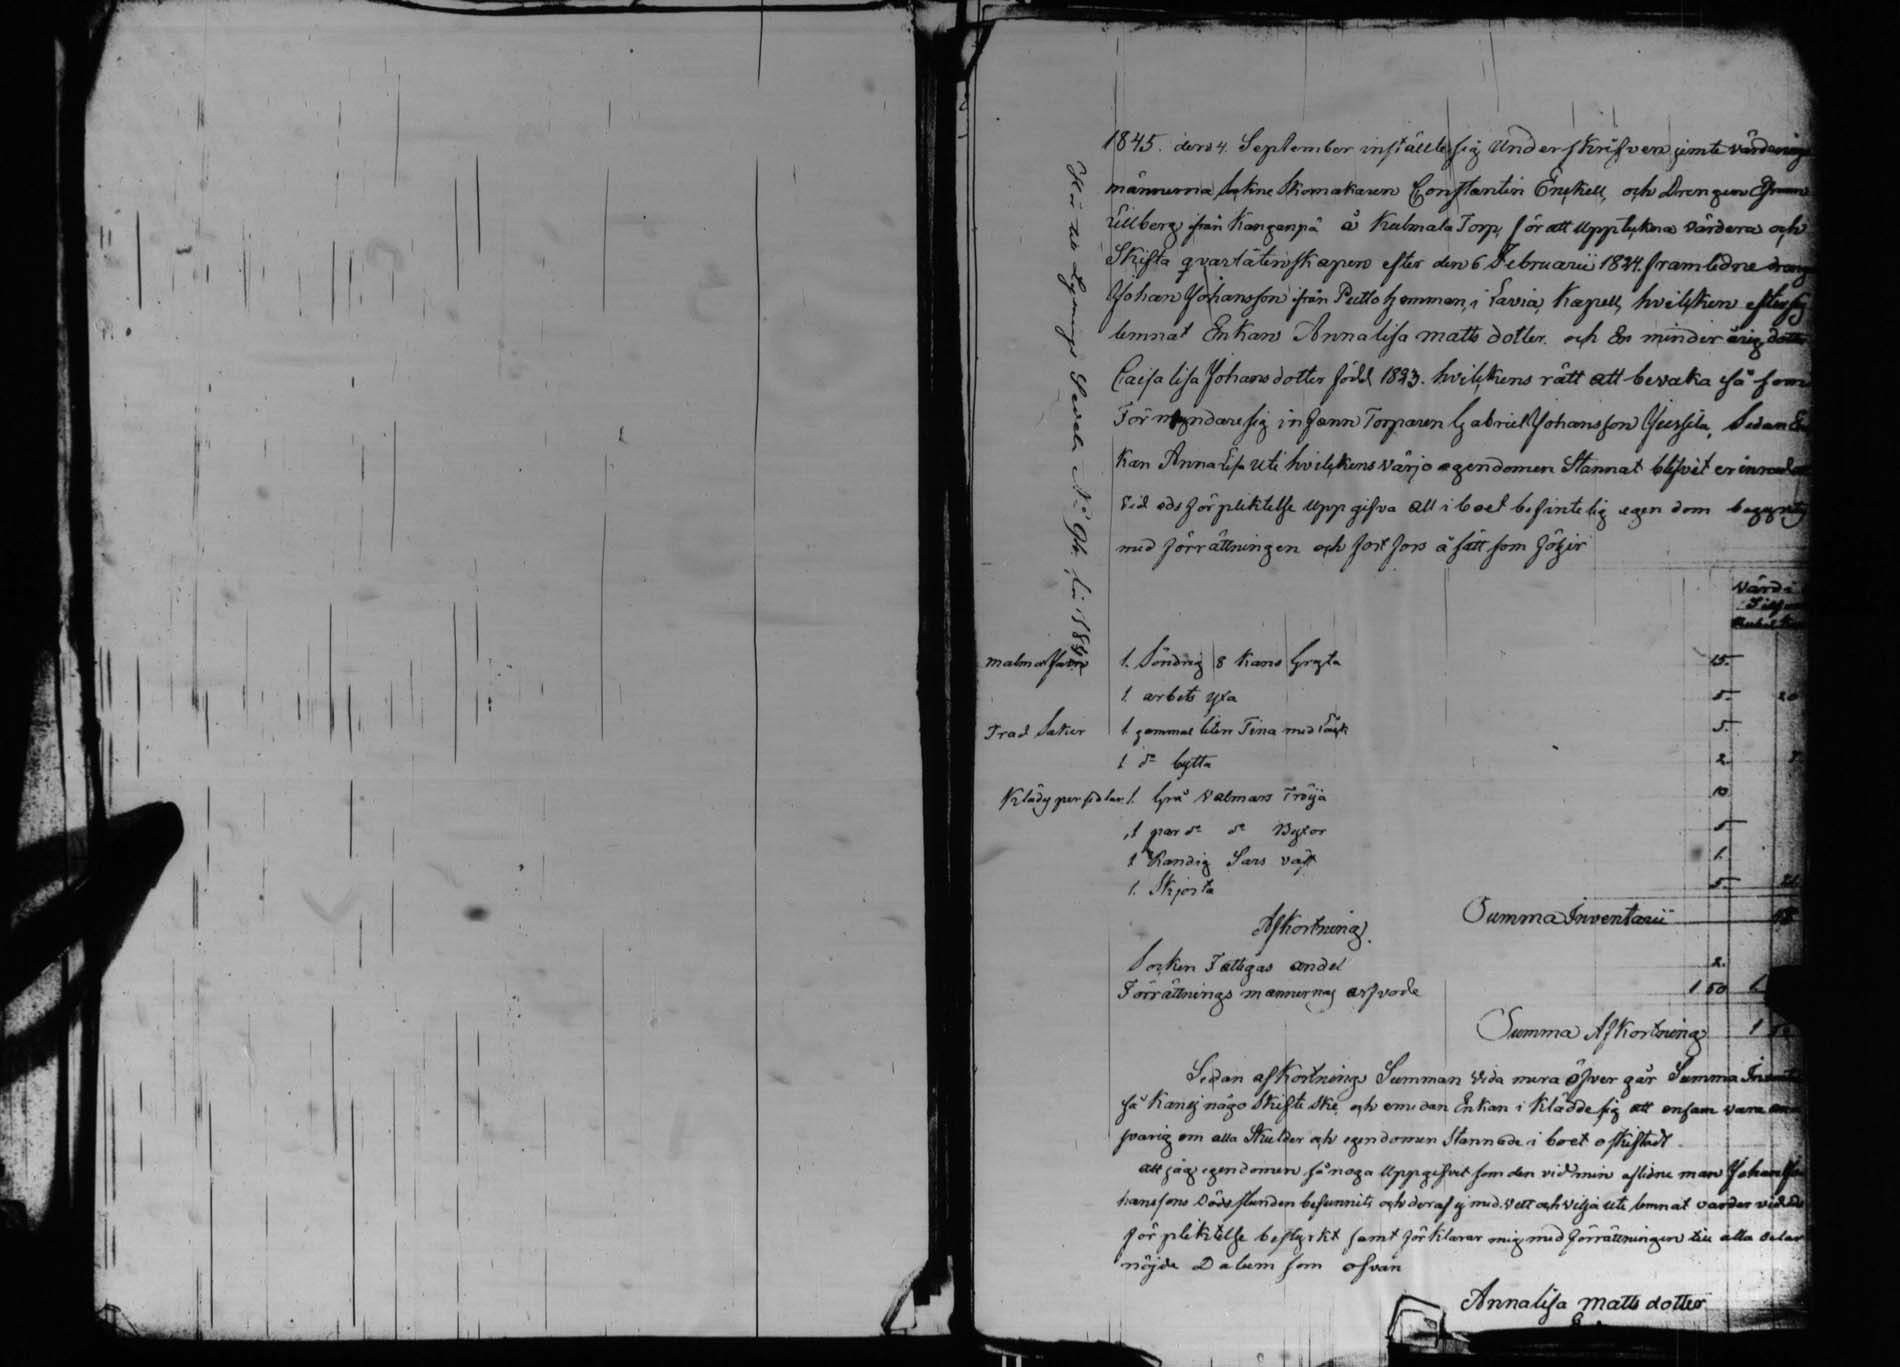 1845. den 4. September instälte sig Underskrifven jemte värderings
männerna Sokne Skomakaren Constantin Enckell, och Drengen
Lillberg ifrån Kangenpä å Kulmala Torp, för att Upptekna värdera och
Skifta qvarlåtenskapen efter den 6 Februarii 1824. framledne dreng
Johan Johansson ifrån Putto hemman, i Lavia, Kapell, hvilcken efter sig
lemnat Enkan Annalisa matts dotter. och En minder årig dotter
Caisa lisa Johans dotter född 1823. hvilckens rätt att bevaka så som
För myndare sig infann Torparen Gabriel Johansson Jussila, Sedan En
kan Anna Lisa uti hvilckens värjo egendomen Stannat blifvit erinrad att
vid eds förpliktelse uppgifva all i boet befintelig egen dom
med förrättningen och fort fors å sätt som följer
Värde i
malmsaker 1. Söndrig 8 kans Gryta 15.
1 arbets yxa 5. 20
Träd Saker 1 gammal liten Tina med Låck 5.
1 do bytta 2
Klädespersedlar 1. Grå Valmars Tröija 10
1 par do do Byxor 5
1 Randig Sars väst 1.
1. Skjorta 5.
Summa Inventarii
Afkortning.
Socken Fattigas andel 2.
Förrättnings mannernas arfvode 1 50 1.
Summa Afkortning 1
Sedan afkortnings Summan vida mera öfver går Summa
så kan ej någo Skifte ske, och emedan Enkan i klädde sig att ensam vara an
svarig om alla Skulder och egendomen Stannade i boet oskiftadt.
att jag egendomen så noga uppgifvit som den vid min aflidne man Johan Jo
hanssons Dödsstunden befunnits och deraf ej med vett och vilja ute lemnat varder vid
förpliktelse bestyrkt samt förklarar mig med förrättningen till alla delar
nöjde Datum som ofvan
Annalisa matts dotter